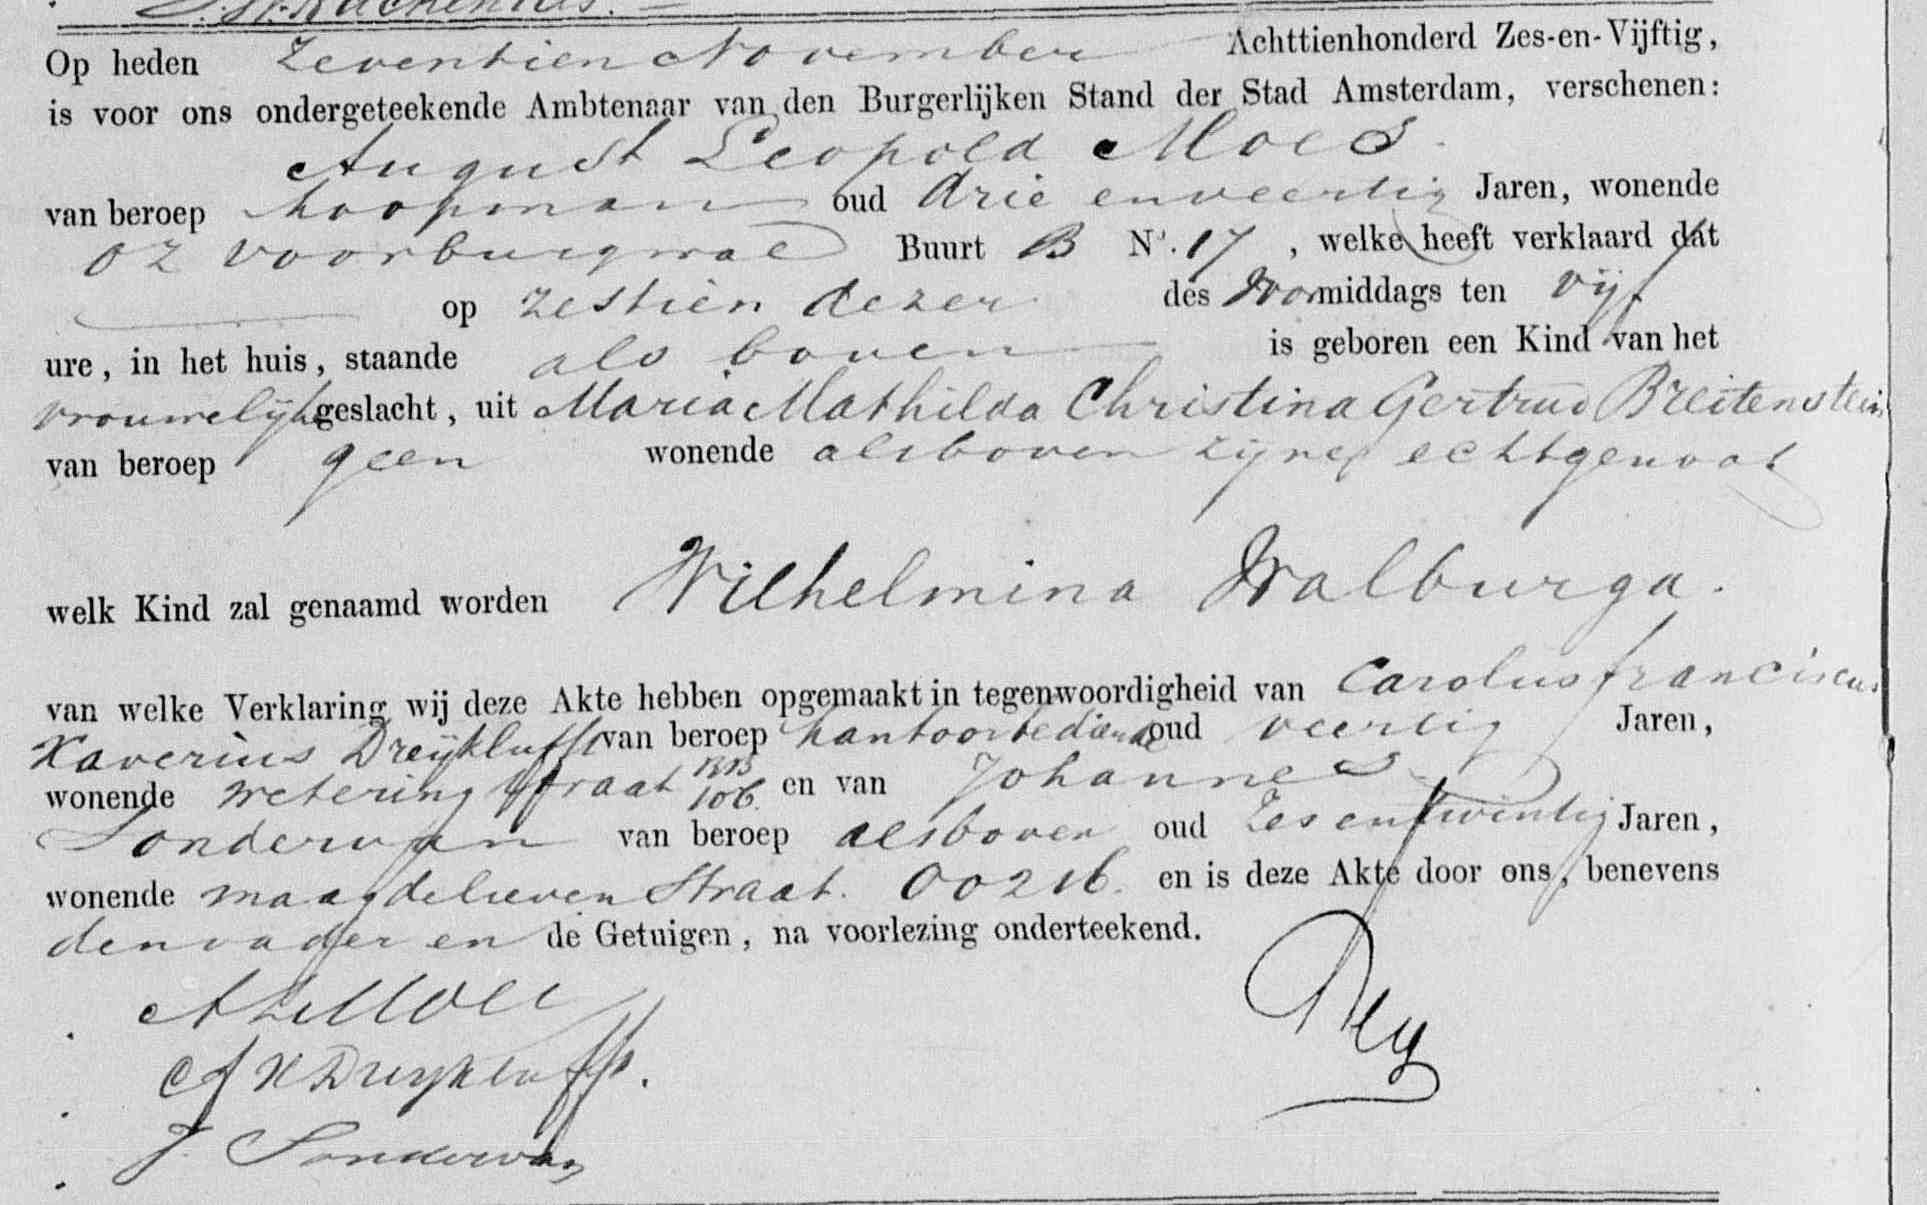 Op heden Zeventien November Achttienhonderd Zes-en-Vijftig,
is voor ons ondergeteekende Ambtenaar van den Burgerlijken Stand der Stad Amsterdam, verschenen:
August Leopold Moes
van beroep koopman oud drie en veertig Jaren, wonende
OZ voorburgwal Buurt B No. 17, welke heeft verklaard dat
op zestien dezer des voormiddags ten vijf
ure, in het huis, staande als boven is geboren een Kind van het
vrouwelijk geslacht, uit Maria Mathilda Christina Gertrud Breitenstein
van beroep geen wonende als boven zijne echtgenoot
welk Kind zal genaamd worden Wilhelmina Walburga.
van welke Verklaring wij deze Akte hebben opgemaakt in tegenwoordigheid van Carolus franciscus
Xaverius Dreijkluft van beroep kantoorbediende oud veertig Jaren,
wonende Wetering straat 106. en van Johannes
Sondervan van beroep als boven oud Zes en twintig Jaren,
wonende maagdelieven Straat. OO 216. en is deze Akte door ons, benevens
den vader en de Getuigen, na voorlezing onderteekend.
A L Moes
C f X Dreijkluft.
J. Sondervan